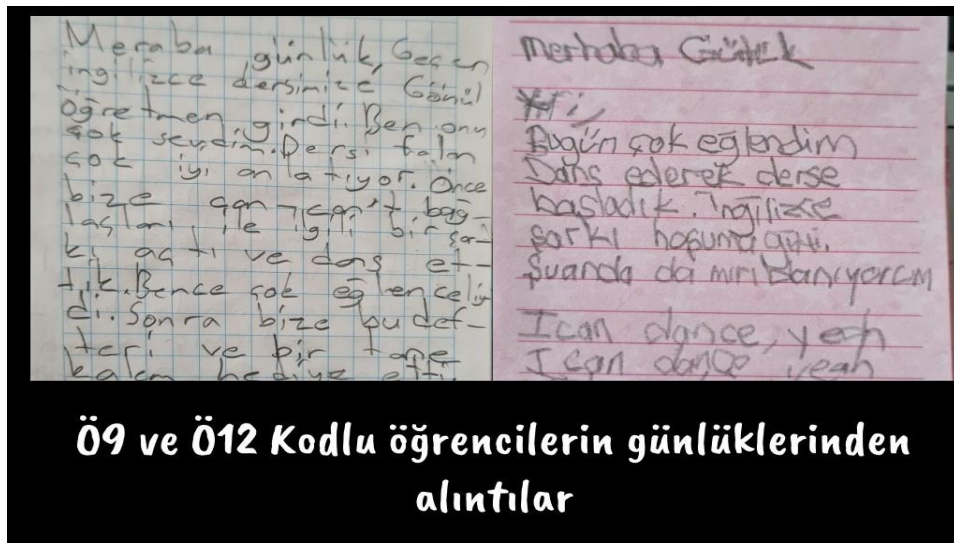 Meraba günlük, Geçen
ingilizce dersimize Gönül
öğretmen girdi. Ben onu
çok sevdim. Dersi falan
çok iyi anlatıyor. Önce
bize can-can't bağ-
laçları ile ilgili bir şar-
kı açtı ve dans et-
tik. Bence çok eğlenceliy-
di. Sonra bize bu def-
teri ve bir tane
kalem hediye etti.
merhaba Günlük
Bugün çok eğlendim
Dans ederek derse
başladık. İngilizce
şarkı hoşuma gitti.
Şuanda da mırıldanıyorum
I can dance, yeah
I can dance yeah
Ö9 ve Ö12 Kodlu öğrencilerin günlüklerinden
alıntılar